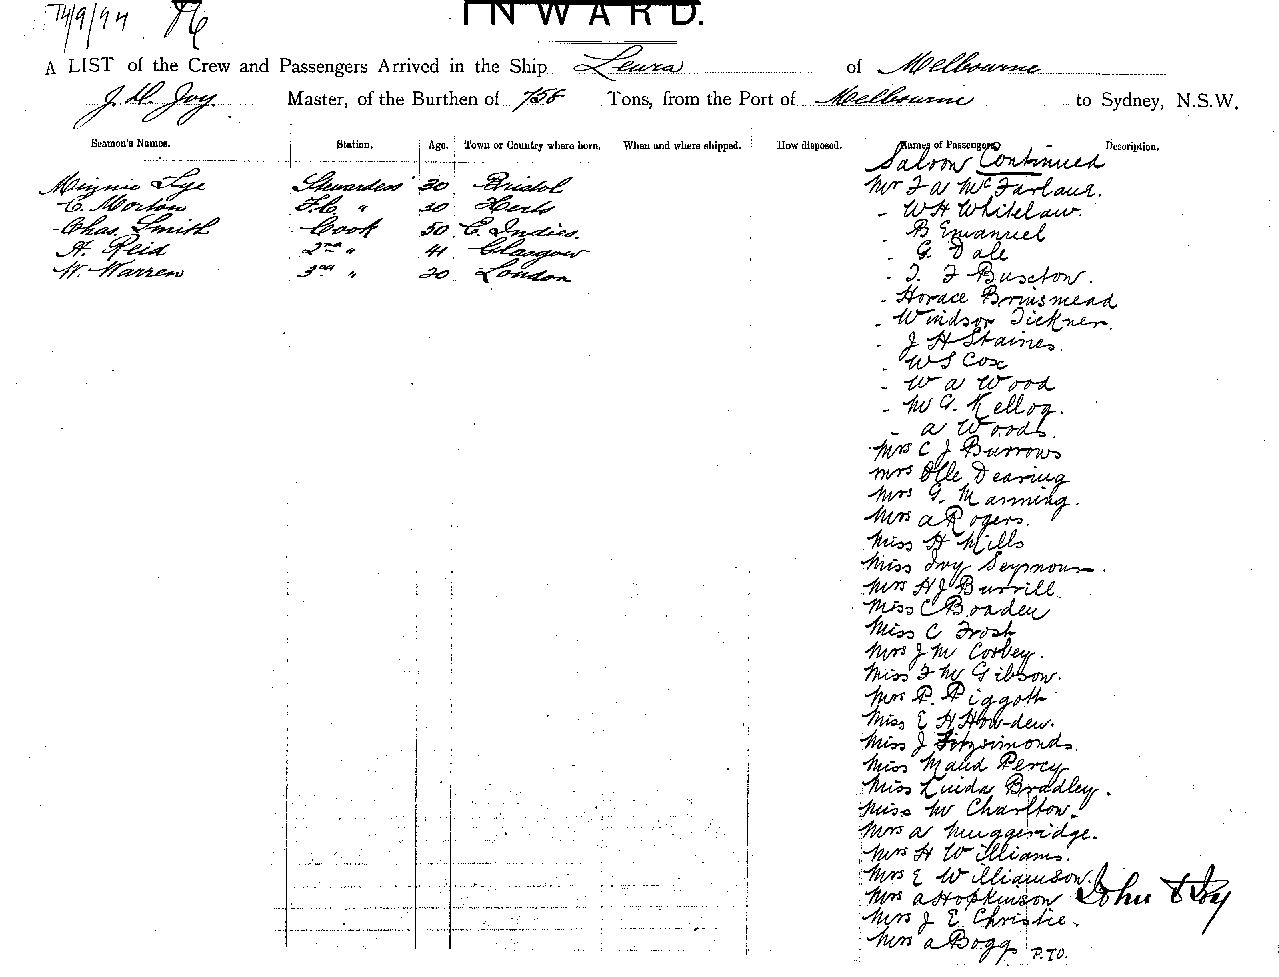 14/9/94
INWARD.
A LIST of the Crew and Passengers Arrived in the Ship Leura of Melbourne
J. D. Joy Master, of the Burthen of 758 Tons, from the Port of Melbourne to Sydney, N.S.W.
Seamen's Names. Station. Age. Town or Country where born. When and where shipped. How disposed. Names of Passengers Description.
Saloon Continued
Minnie Lye Stewardess 30 Bristol
C. Morton F.C. " 30 Herts
Chas. Smith Cook 50 E. Indies.
A. Reid 2nd " 41 Glasgow
W. Warren 3rd " 20 London
Mr F A McFarland.
- W H Whitelaw.
- B Emanuel
- G. Dale
- F. F Buxton.
- Horace Brinsmead
- Windsor Tickner.
- J H Staines.
- W S Cox
- W A Wood
- M G. Kellog.
- A Woods.
Mrs C J Burrows
Mrs Olle Dearing
Mrs G. Manning.
Mrs A Rogers.
Miss H Mills
Miss Ivy Seymour.
Mrs H J Burrill
Miss C Boaden
Miss C Frost
Mrs J M Corbey.
Miss F M Gibson.
Mrs P. Piggott
Miss E H How-den.
Miss J Fitzsimonds.
Miss Maud Percy
Miss Linda Bradley.
Miss M Charlton.
Mrs A Muggeridge.
Mrs H Williams.
Mrs E Williamson.
Mrs A Hopkinson John D Joy
Mrs J E Christie.
Mrs A Bogg P.T.O.